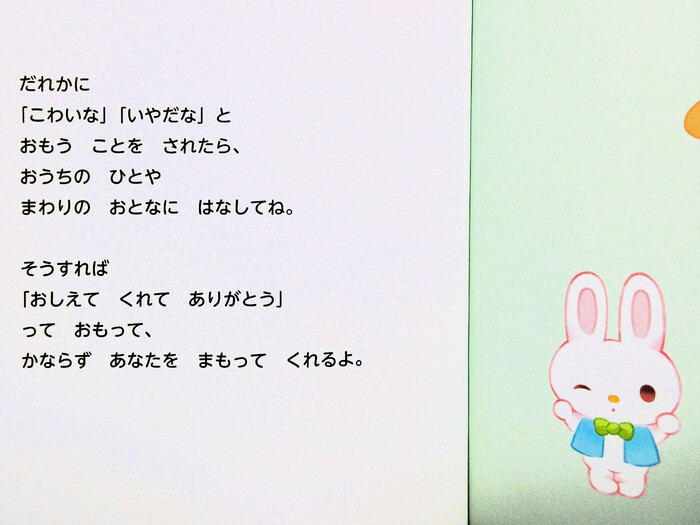 だれかに
「こわいな」「いやだな」と
おもう　ことを　されたら、
おうちの　ひとや
まわりの　おとなに　はなしてね。
そうすれば
「おしえて　くれて　ありがとう」
って　おもって、
かならず　あなたを　まもって　くれるよ。